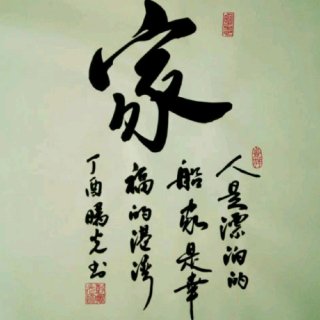 家
人是漂泊的
船家是幸
福的港湾
丁酉晓光书